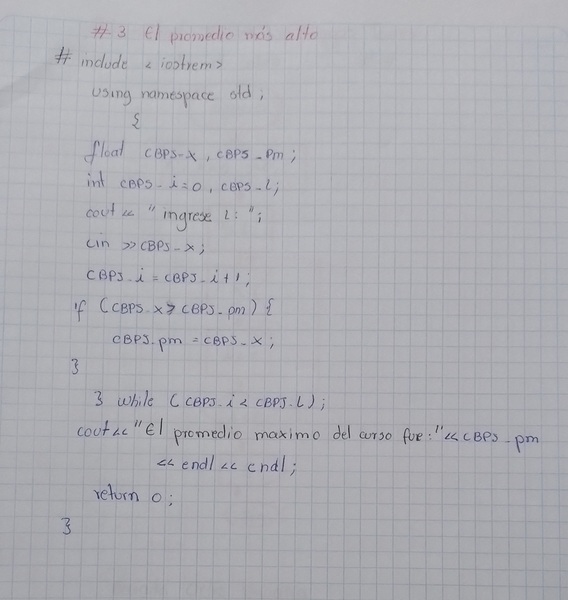 #3 El promedio más alto
# include < iostrem>
using namespace std;
{
float CBPS-x, CBPS-Pm;
int CBPS-i=0, CBPS-l;
cout << "ingrese l: ";
cin >> CBPS-x;
CBPS-i = CBPS-i+1;
if (CBPS-x > CBPS-pm) {
CBPS-pm = CBPS-x;
}
} while (CBPS-i < CBPS-L);
cout << "El promedio maximo del curso fue:" << CBPS-pm
<< endl << endl;
return 0;
}